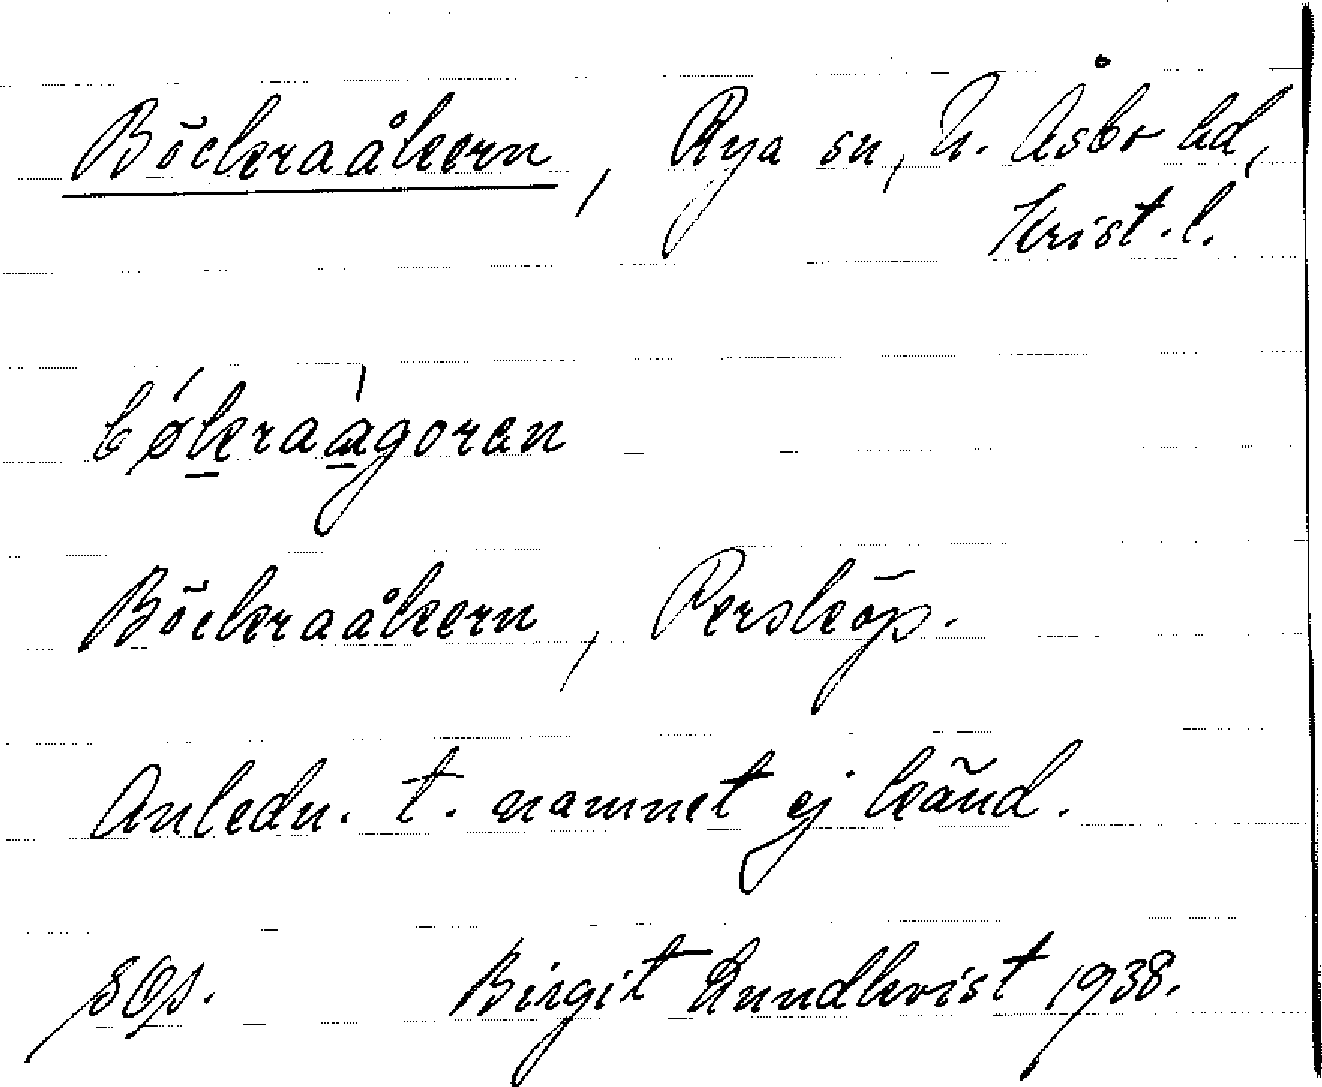 Böckraåkern, Rya sn, N. Åsbo hd,
Krist. l.
bøkraagoren
Böckraåkern, Persköp.
Anledn. t. namnet ej känd.
Birgit Lundkvist 1938.